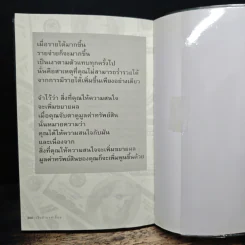 เมื่อรายได้มากขึ้น
รายจ่ายก็จะมากขึ้น
เป็นเงาตามตัวแทบทุกครั้งไป
นั่นคือสาเหตุที่คุณไม่สามารถร่ำรวยได้
จากการมีรายได้เพิ่มขึ้นเพียงอย่างเดียว
จำไว้ว่า สิ่งที่คุณให้ความสนใจ
จะเพิ่มขยายผล
เมื่อคุณจับตาดูมูลค่าทรัพย์สิน
นั่นหมายความว่า
คุณได้ให้ความสนใจกับมัน
และเนื่องจาก
สิ่งที่คุณให้ความสนใจจะเพิ่มขยายผล
มูลค่าทรัพย์สินของคุณก็จะเพิ่มพูนขึ้นด้วย